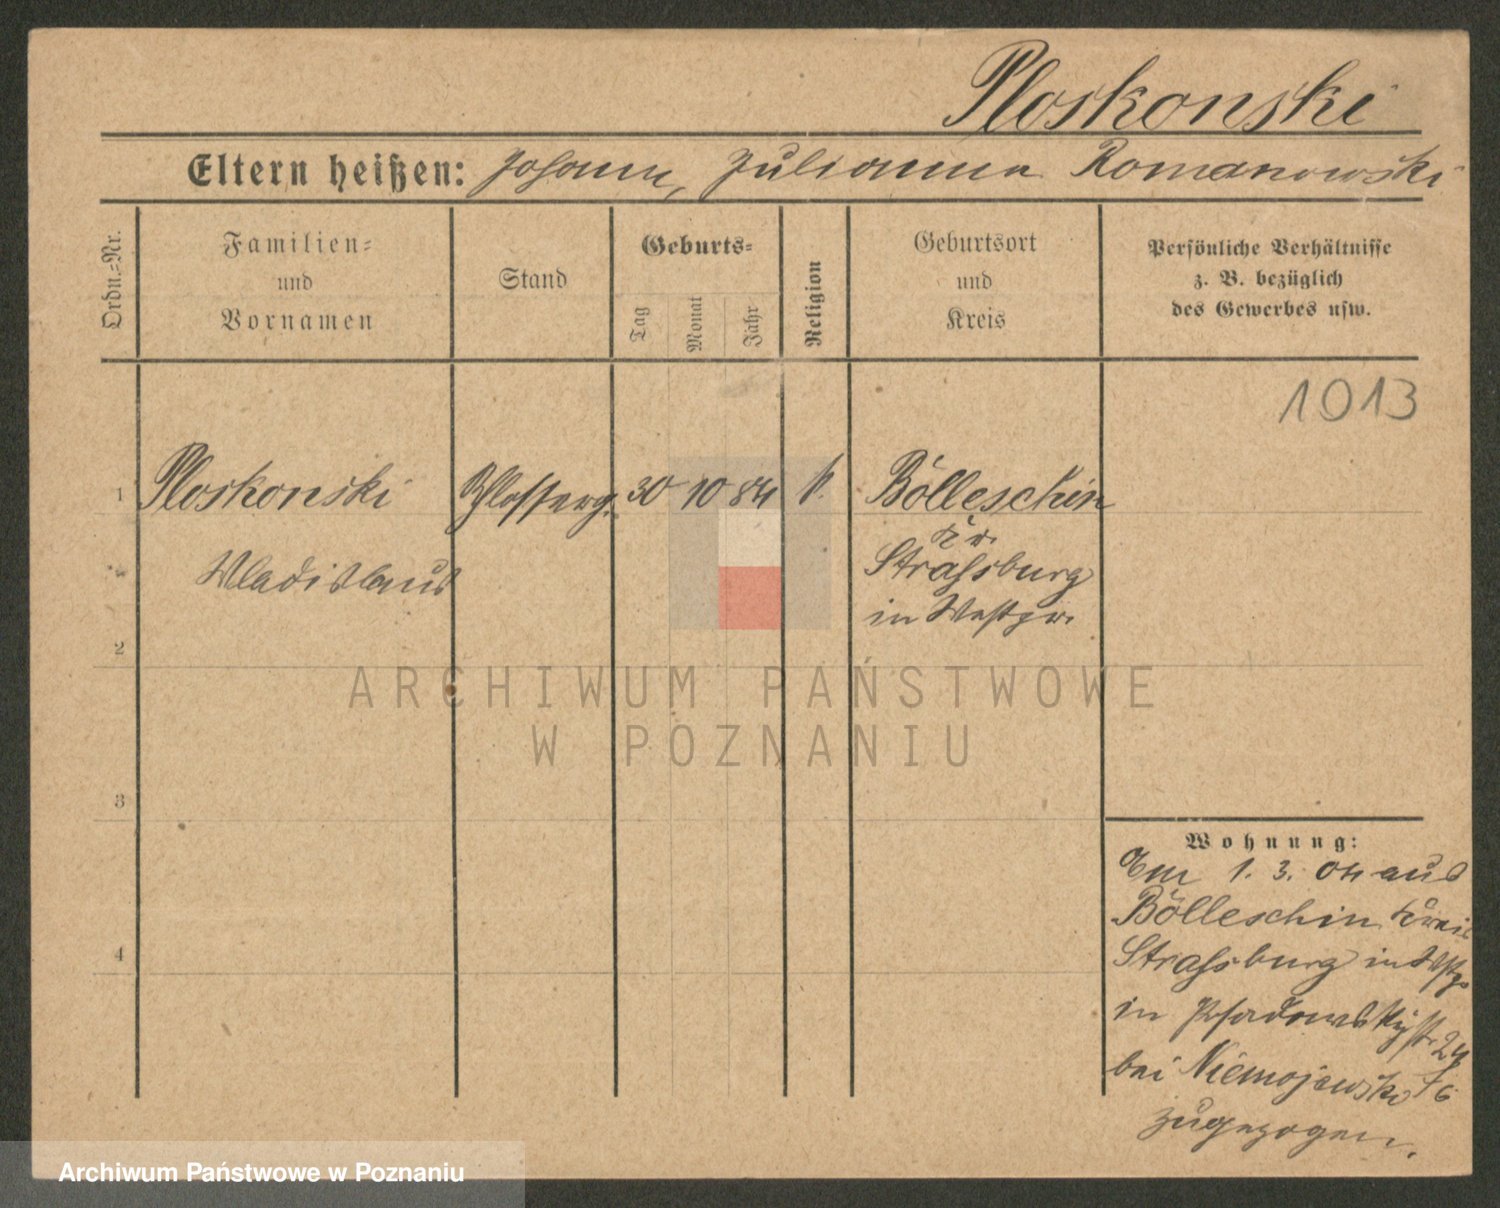 Ploskonski
Eltern heißen: Johann, Julianna Romanowski
Ordn.=Nr.
Familien=
und
Vornamen
Stand
Geburts=
Tag
Monat
Jahr
Religion
Geburtsort
und
Kreis
Persönliche Verhältnisse
z. B. bezüglich
des Gewerbes usw.
1013
1 Ploskonski Schlosserg. 30 10 84 k. Bölleschin
Kr.
Wladislaus Strassburg
in Westpr.
2
3
4
ARCHIWUM PAŃSTWOWE
W POZNANIU
Wohnung:
Am 1. 3. 04 aus
Bölleschin Kreis
Strassburg in Wstp.
in 24
bei Niemojewski 6
zugezogen.
Archiwum Państwowe w Poznaniu